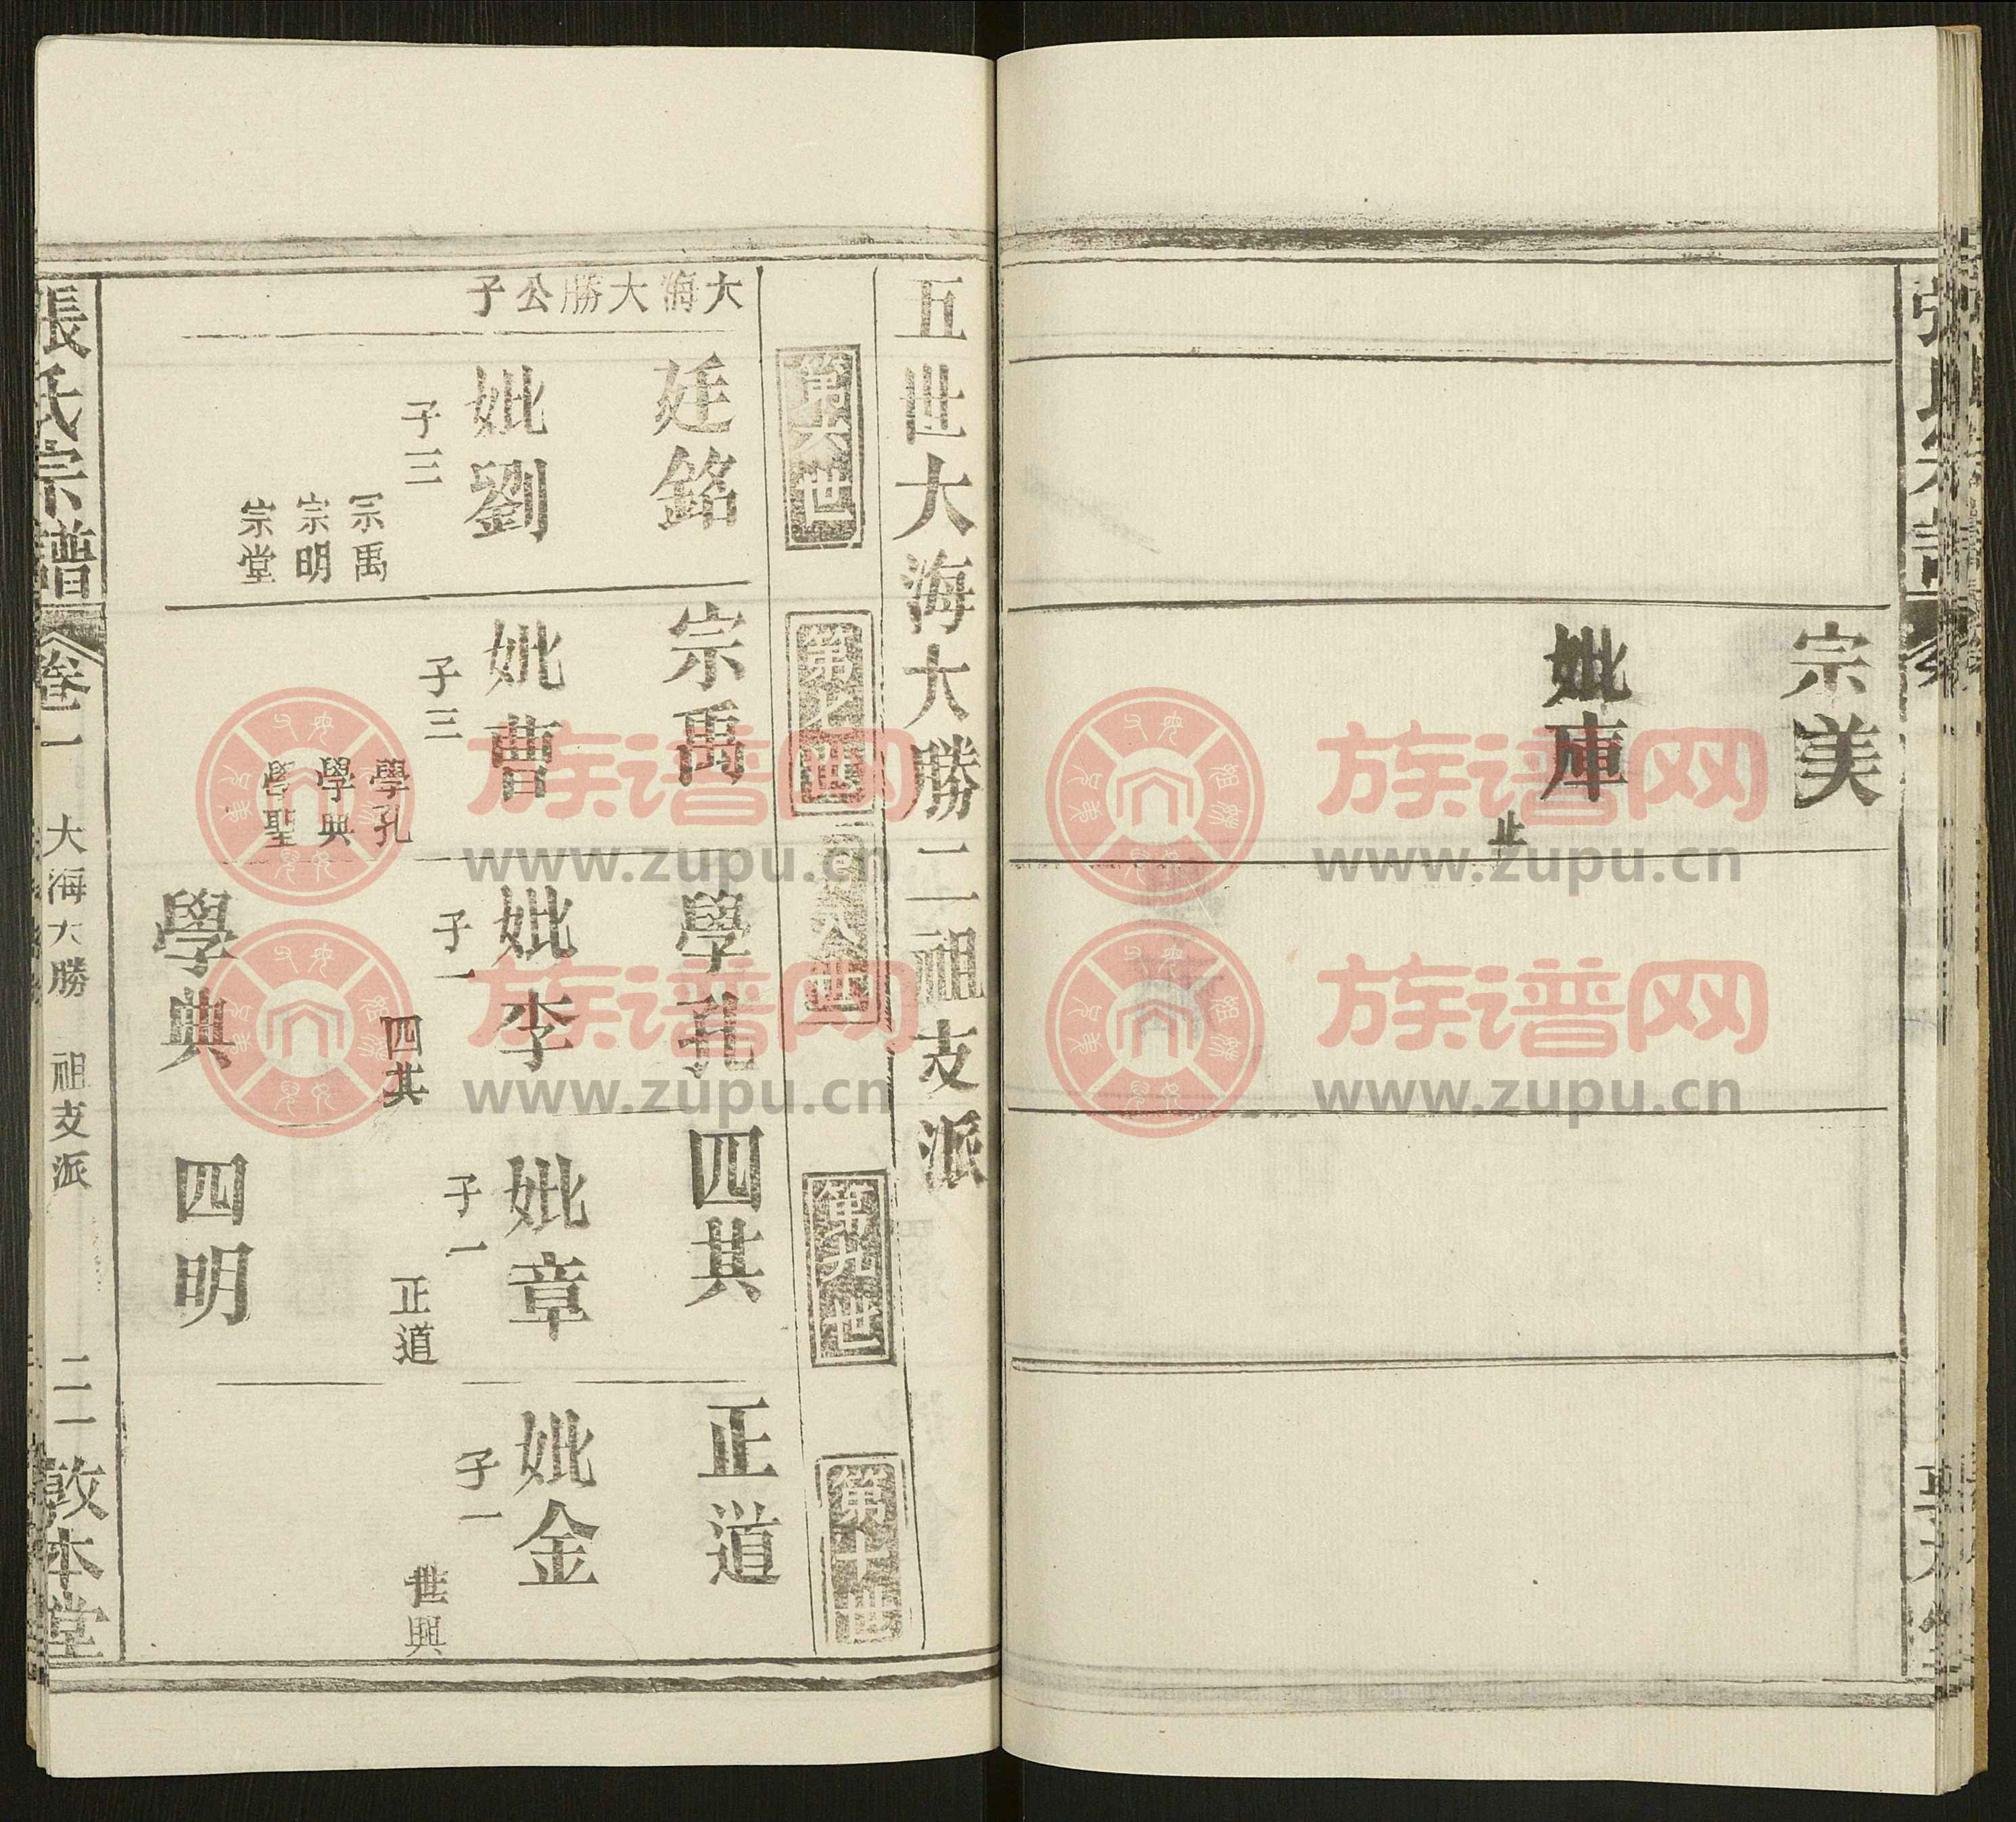 宗美
妣庫
止
五世大海大勝二祖支派
第六世
第七世
第八世
第九世
第十世
大海大勝公子
廷銘
妣劉
子三
宗禹
宗明
宗堂
宗禹
妣曹
子三
學孔
學典
學聖
學孔
妣李
子一
四其
學典
四其
妣章
子一
正道
四明
正道
妣金
子一
世興
張氏宗譜
卷一
大海大勝
祖支派
敦本堂
族谱网
www.zupu.cn
族谱网
www.zupu.cn
族谱网
www.zupu.cn
族谱网
www.zupu.cn